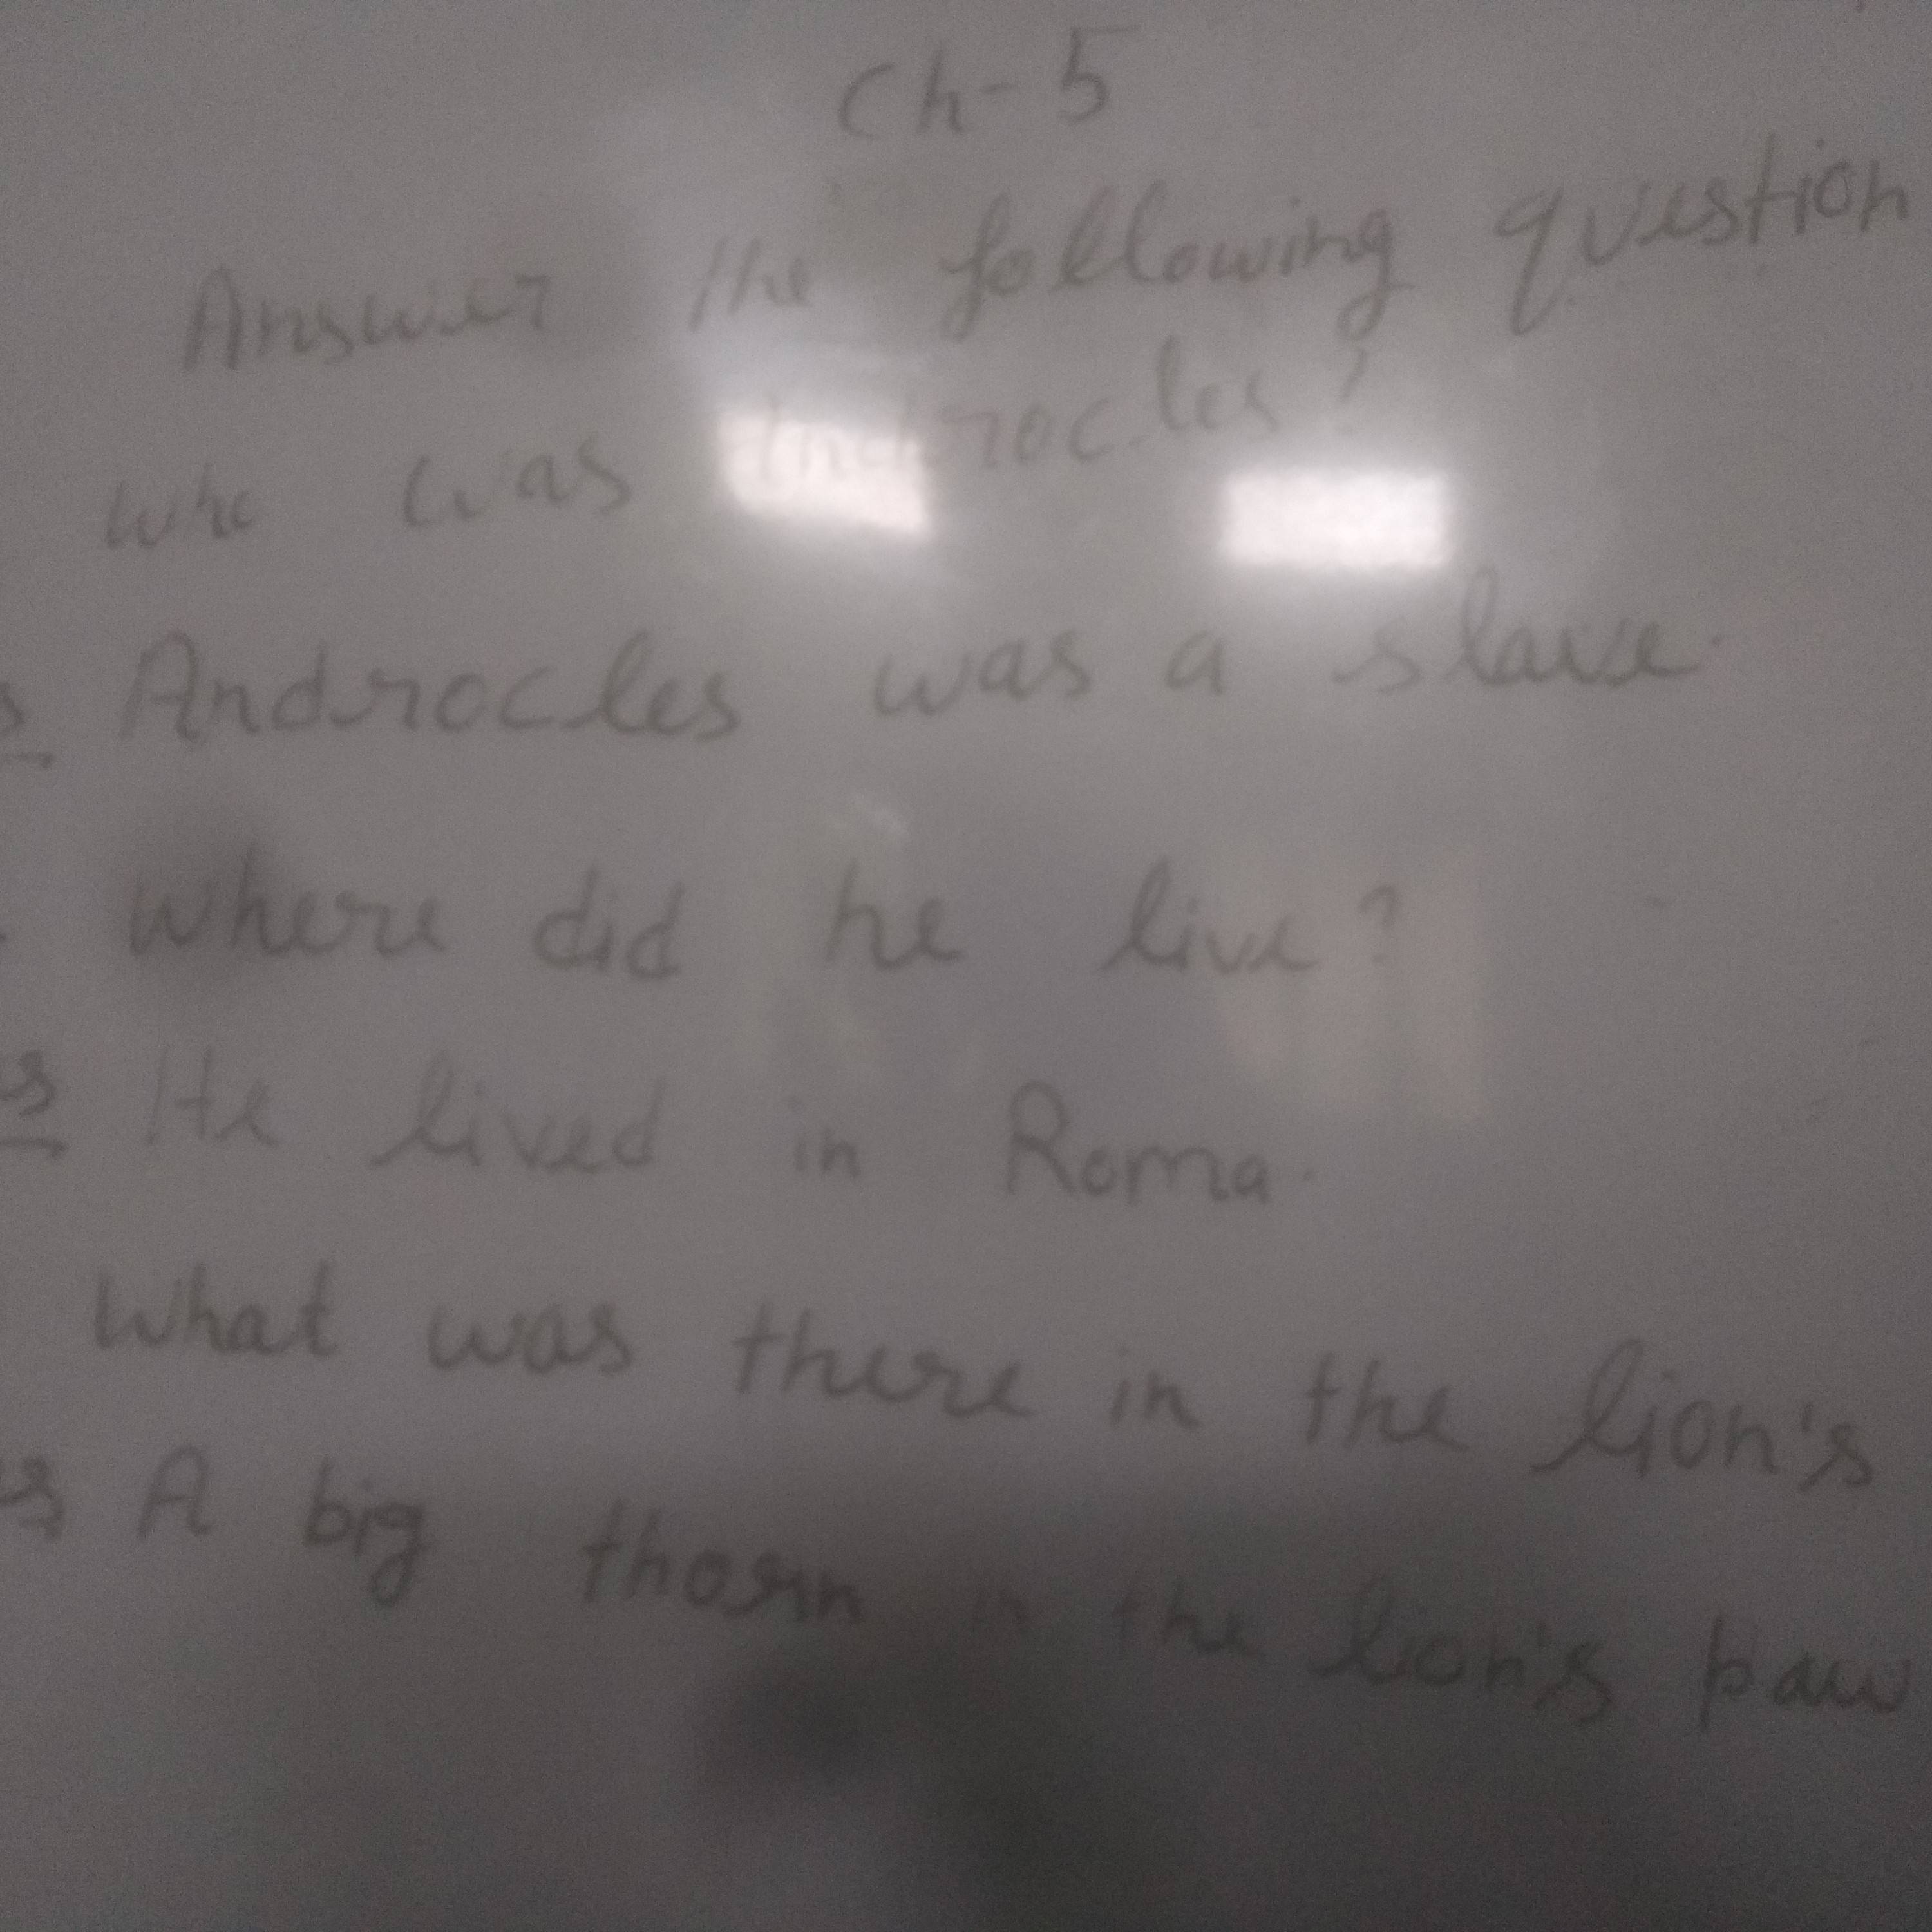 Ch-5
Answer the following question
who was Androcles?
s Androcles was a slave.
where did he live?
s He lived in Roma.
What was there in the lion's
s A big thosrn in the lion's paw